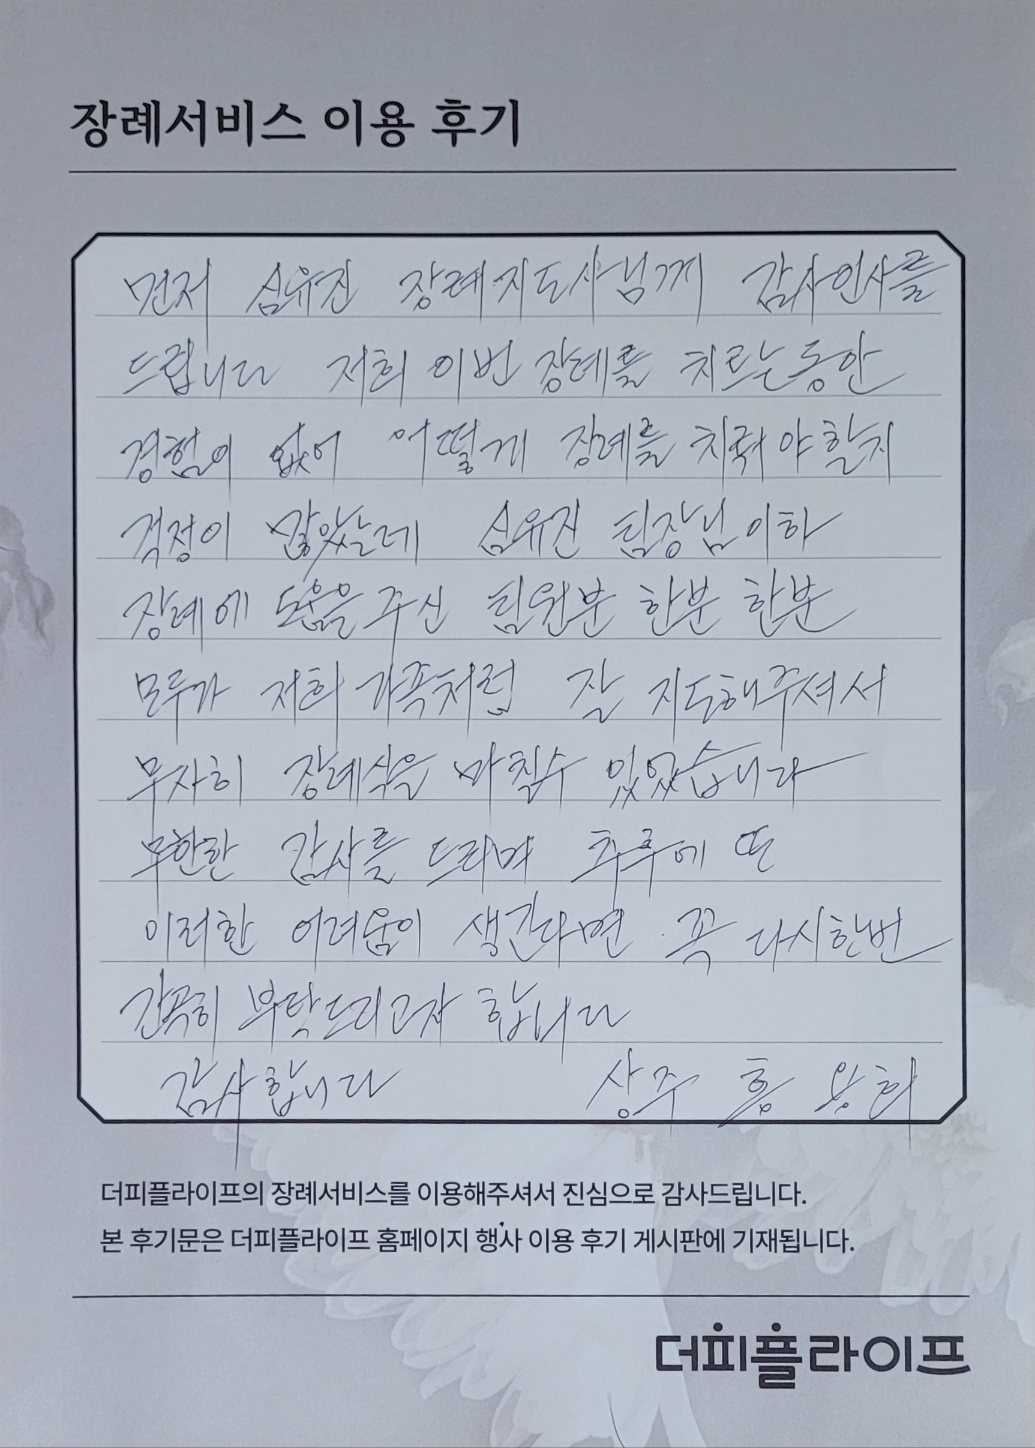 장례서비스 이용 후기
먼저 심유진 장례지도사님께 감사인사를
드립니다 저희 이번 장례를 치르는동안
경험이 없어 어떻게 장례를 치뤄야할지
걱정이 많았는데 심유진 팀장님이하
장례에 도움을주신 팀원분 한분 한분
모두가 저희 가족처럼 잘 지도해주셔서
무사히 장례식을 마칠수 있었습니다
무한한 감사를 드리며 추후에 또
이러한 어려움이 생긴다면 꼭 다시한번
간곡히 부탁드리고자 합니다
감사합니다 상주 홍
더피플라이프의 장례서비스를 이용해주셔서 진심으로 감사드립니다.
본 후기문은 더피플라이프 홈페이지 행사 이용 후기 게시판에 기재됩니다.
더피플라이프